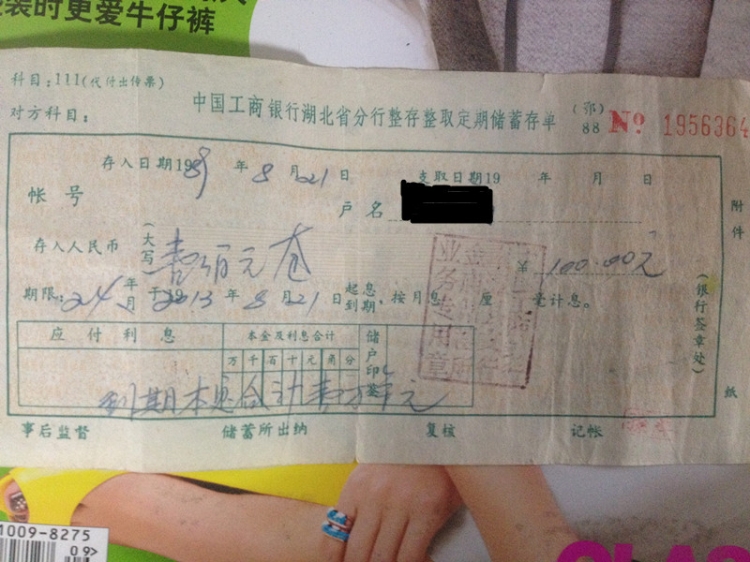 装时更爱牛仔裤
科目:111(代付出传票)
对方科目:
中国工商银行湖北省分行整存整取定期储蓄存单
(鄂)
88
№ 1956364
存入日期1989年8月21日
支取日期19 年 月 日
帐号
户名
附件
存入人民币
(大写
壹佰元整
¥100.00元
期限:24年月于2013年8月21日起息到期,按月息 厘 毫计息。
(银行签章处)
业务专用章
应付利息
本金及利息合计
储户印(签
万千百十元角分
到期本息合计
元
纸
事后监督
储蓄所出纳
复核
记帐
1009-8275
09>